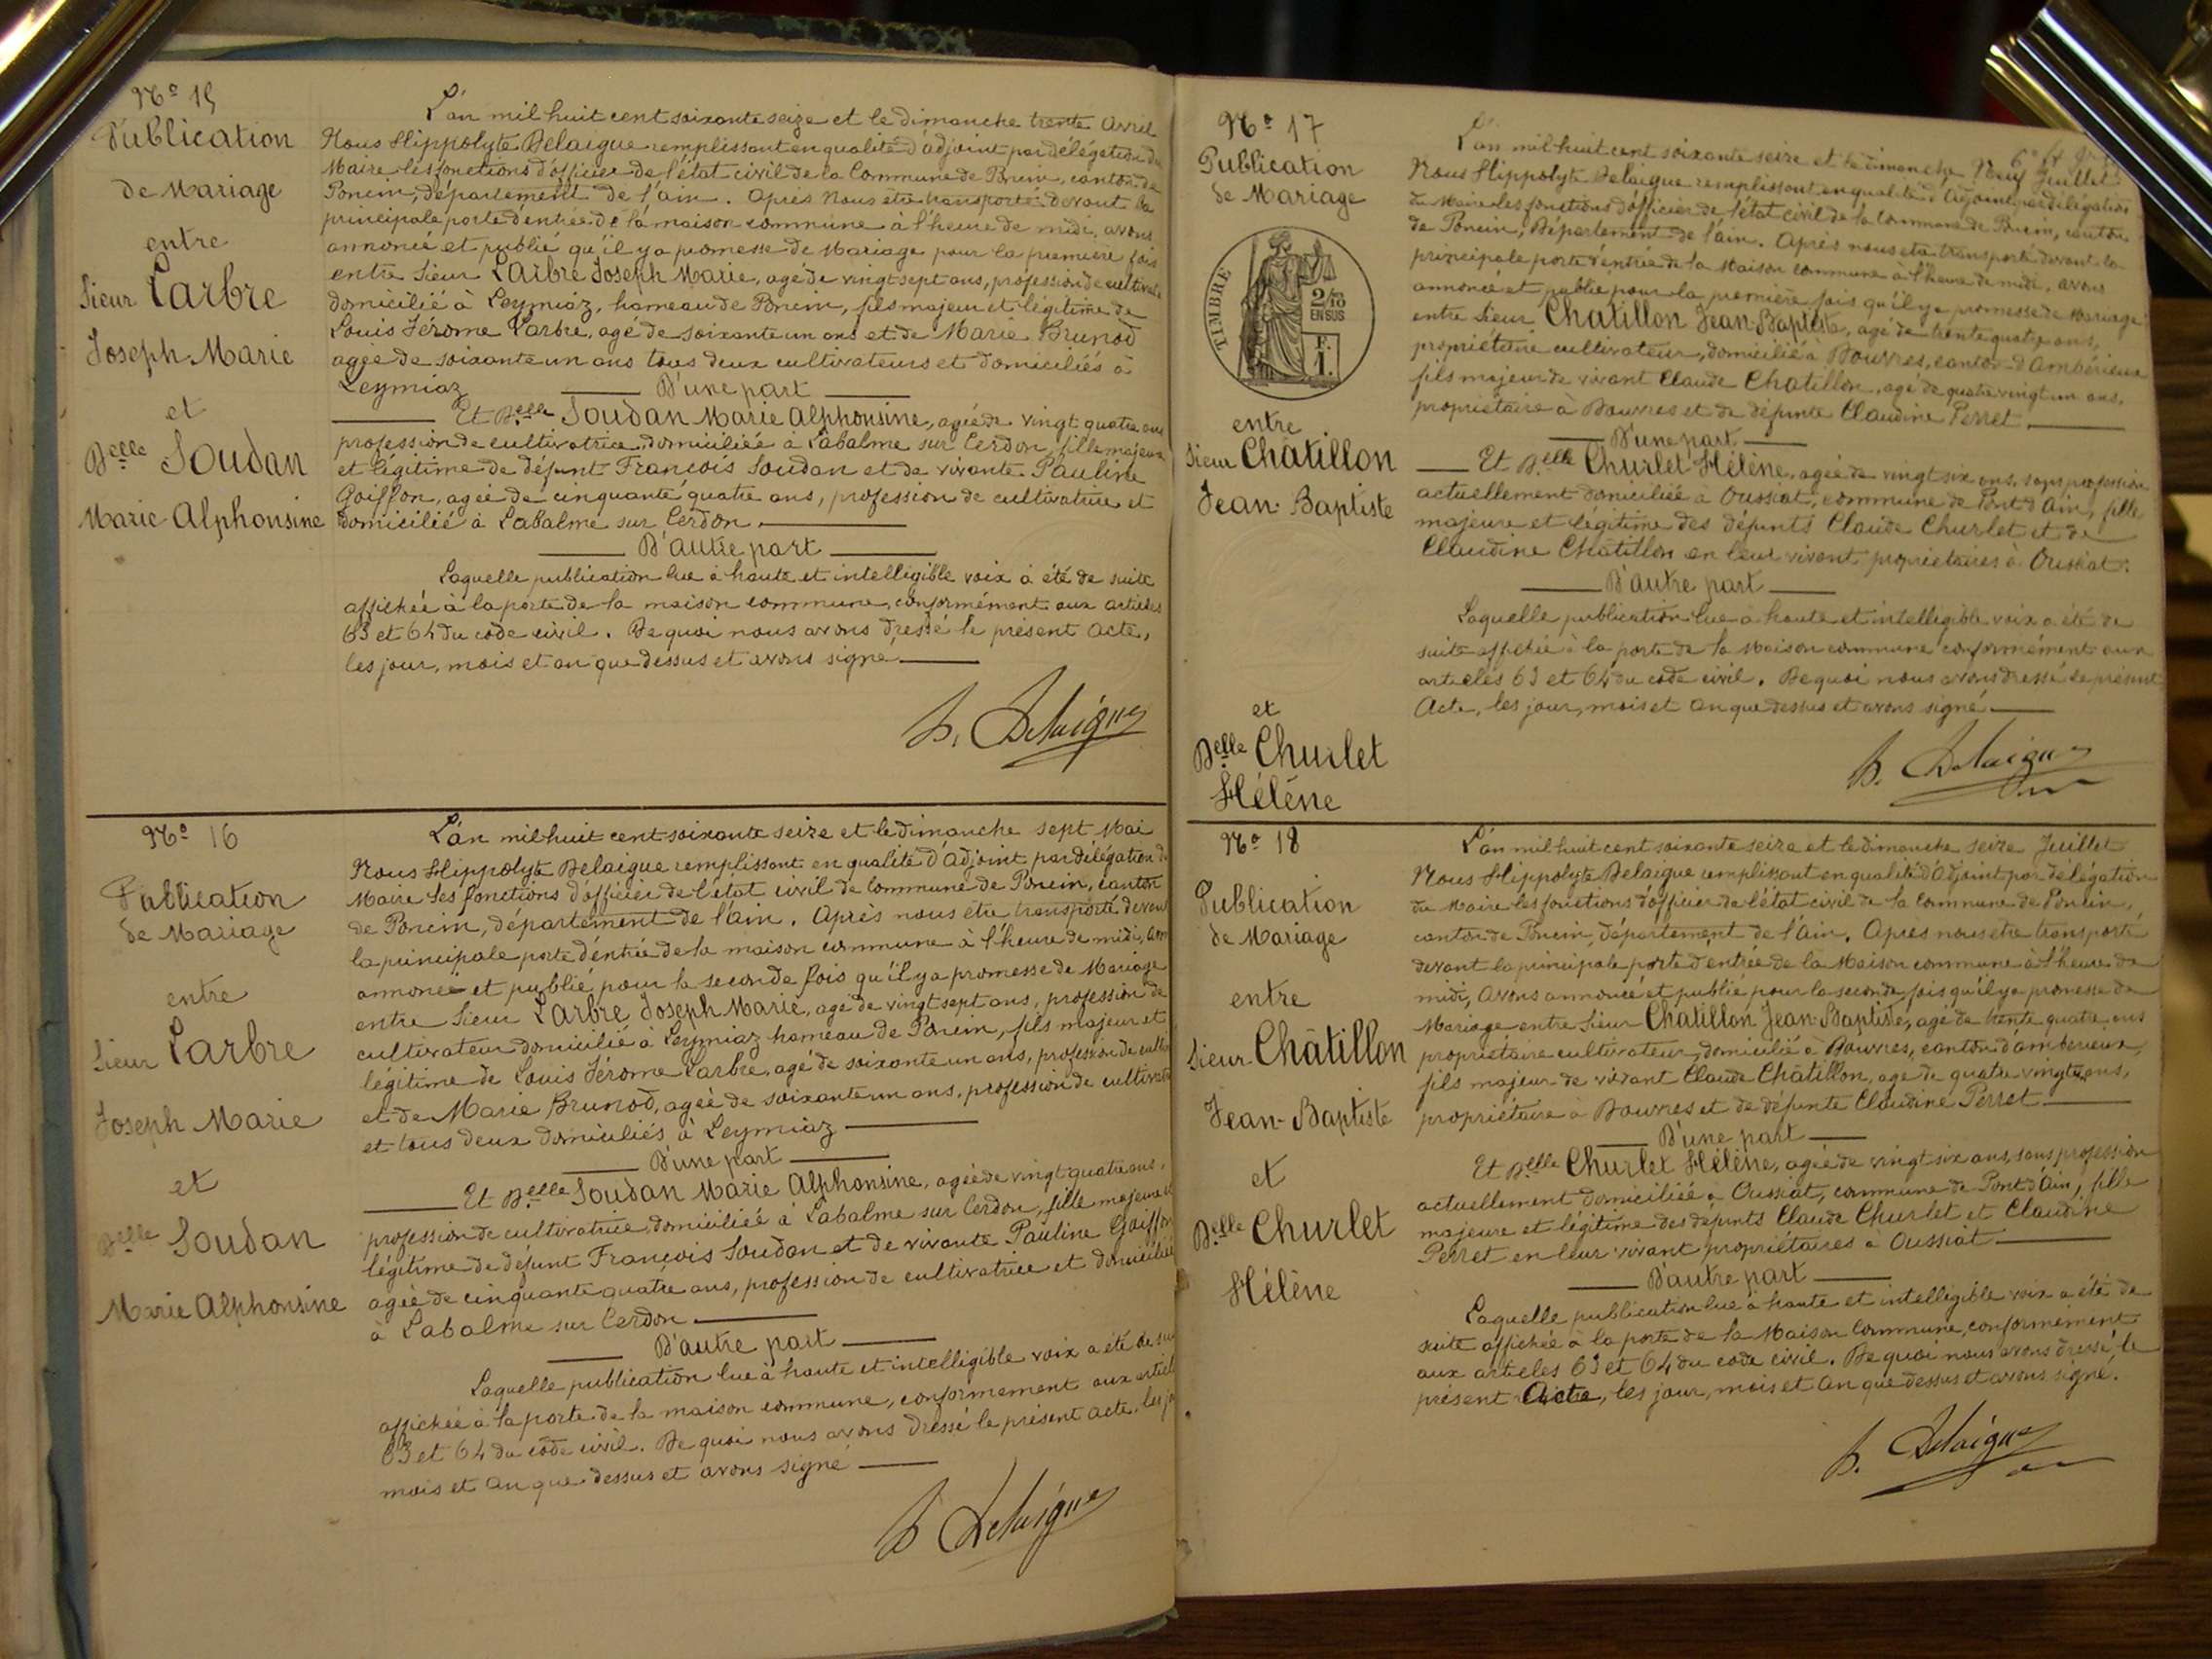 Nº 15
Publication
de Mariage
entre
Sieur Larbre
Joseph Marie
et
Delle Soudan
Marie Alphonsine
L'an mil huit cent soixante seize et le dimanche trente Avril
Nous Hippolyte Delaigue remplissant en qualité d'adjoint par délégation du
Maire les fonctions d'officier de l'état civil de la Commune de Poncin, canton de
Poncin, département de l'ain. Après Nous être transporté devant la
principale porte d'entrée de la maison commune à l'heure de midi, avons
annoncé et publié qu'il y a promesse de Mariage pour la première fois
entre Sieur Larbre Joseph Marie, agé de vingt sept ans, profession de cultivat
domicilié à Leymiaz, hameau de Poncin, fils majeur et légitime de
Louis Jérome Larbre, agé de soixante un ans et de Marie Brunod
agée de soixante un ans tous deux cultivateurs et domiciliés à
Leymiaz D'une part
Et Delle Soudan Marie Alphonsine, agée de vingt quatre ans
profession de cultivatrice domiciliée à Labalme sur Cerdon, fille majeure
et légitime de défunt François Soudan et de vivante Pauline
Goiffon, agée de cinquante quatre ans, profession de cultivatrice et
domicilié à Labalme sur Cerdon
D'autre part
Laquelle publication lue à haute et intelligible voix à été de suite
affichée à la porte de la maison commune, conformément aux articles
63 et 64 du code civil. De quoi nous avons dressé le présent acte,
les jour, mois et an que dessus et avons signé
h. Delaigue
Nº 16
Publication
de Mariage
entre
Sieur Larbre
Joseph Marie
et
Delle Soudan
Marie Alphonsine
L'an mil huit cent soixante seize et le dimanche sept Mai
Nous Hippolyte Delaigue remplissant en qualité d'adjoint par délégation du
Maire les fonctions d'officier de l'état civil de Commune de Poncin, canton
de Poncin, département de l'ain. Après nous être transporté devant
la principale porte d'entrée de la maison commune à l'heure de midi, avo
annoncé et publié pour la seconde fois qu'il y a promesse de Mariage
entre Sieur Larbre Joseph Marie, agé de vingt sept ans, profession de
cultivateur domicilié à Leymiaz hameau de Poncin, fils majeur et
légitime de Louis Jérome Larbre, agé de soixante un ans, profession de culti
et de Marie Brunod, agée de soixante un ans, profession de cultivat
et tous deux domiciliés à Leymiaz
D'une part
Et Delle Soudan Marie Alphonsine, agée de vingt quatre ans,
profession de cultivatrice domiciliée à Labalme sur Cerdon, fille majeure et
légitime de défunt François Soudan et de vivante Pauline Goiffon
agée de cinquante quatre ans, profession de cultivatrice et domiciliée
à Labalme sur Cerdon
D'autre part
Laquelle publication lue à haute et intelligible voix a été de sui
affichée à la porte de la maison commune, conformement aux articl
63 et 64 du code civil. De quoi nous avons dressé le présent acte, les jo
mois et an que dessus et avons signé
h Delaigue
Nº 17
Publication
de Mariage
TIMBRE
2/10
EN SUS
F.
1.
entre
Sieur Châtillon
Jean-Baptiste
et
Delle Churlet
Hélène
L'an mil huit cent soixante seize et le dimanche Neuf Juillet
Nous Hippolyte Delaigue remplissant en qualité d'Adjoint par délégation
du Maire les fonctions d'officier de l'état civil de la Commune de Poncin, canton
de Poncin, Département de l'ain. Après nous être transporté devant la
principale porte d'entrée de la Maison commune à l'heure de midi, avons
annoncé et publié pour la première fois qu'il y a promesse de Mariage
entre Sieur Chatillon Jean-Baptiste, agé de trente quatre ans,
propriétaire cultivateur, domicilié à Douvres, canton d'Ambérieux
fils majeur de vivant Claude Chatillon, agé de quatre vingt un ans,
propriétaire à Douvres et de défunte Claudine Perret
D'une part
Et Delle Churlet Hélène, agée de vingt six ans, sans profession
actuellement domiciliée à Oussiat, commune de Pont d'Ain, fille
majeure et légitime des défunts Claude Churlet et de
Claudine Châtillon en leur vivant propriétaires à Oussiat.
D'autre part
Laquelle publication lue à haute et intelligible voix a été de
suite affichée à la porte de la Maison commune conformément aux
articles 63 et 64 du code civil. De quoi nous avons dressé le présent
Acte, les jour, mois et an que dessus et avons signé
h. Delaigue
Nº 18
Publication
de Mariage
entre
Sieur Châtillon
Jean-Baptiste
et
Delle Churlet
Hélène
L'an mil huit cent soixante seize et le dimanche seize Juillet
Nous Hippolyte Delaigue remplissant en qualité d'Adjoint par délégation
du Maire les fonctions d'officier de l'état civil de la Commune de Poncin,
canton de Poncin, département de l'Ain. Après nous être transporté
devant la principale porte d'entrée de la Maison commune à l'heure de
midi, avons annoncé et publié pour la seconde fois qu'il y a promesse de
Mariage entre Sieur Chatillon Jean-Baptiste, agé de trente quatre ans
propriétaire cultivateur, domicilié à Douvres, canton d'ambérieux,
fils majeur de vivant Claude Châtillon, agé de quatre vingt un ans,
propriétaire à Douvres et de défunte Claudine Perret
D'une part
Et Delle Churlet Hélène, agée de vingt six ans, sans profession
actuellement domiciliée à Oussiat, commune de Pont d'Ain, fille
majeure et légitime des défunts Claude Churlet et Claudine
Perret en leur vivant propriétaires à Oussiat
D'autre part
Laquelle publication lue à haute et intelligible voix a été de
suite affichée à la porte de la Maison Commune, conformément
aux articles 63 et 64 du code civil. De quoi nous avons dressé le
présent Acte, les jour, mois et an que dessus et avons signé.
h. Delaigue